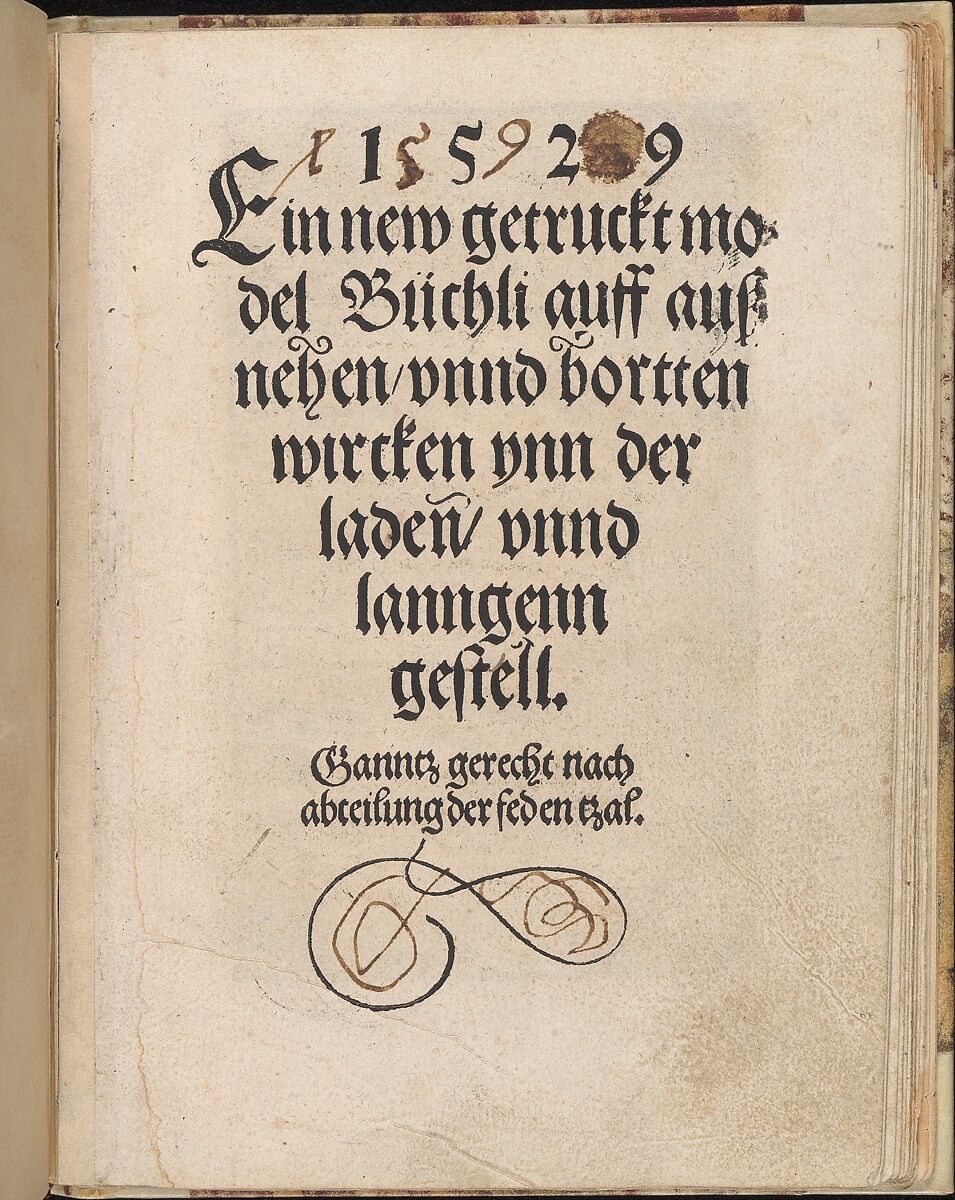 1 5 2 9
Ein new getruckt mo
del Büchli auff auß
nehen/ vnnd bortten
wircken ynn der
laden̄/ vnnd
lanngenn
gestell.
Ganntz gerecht nach
abteilung der feden tzal.